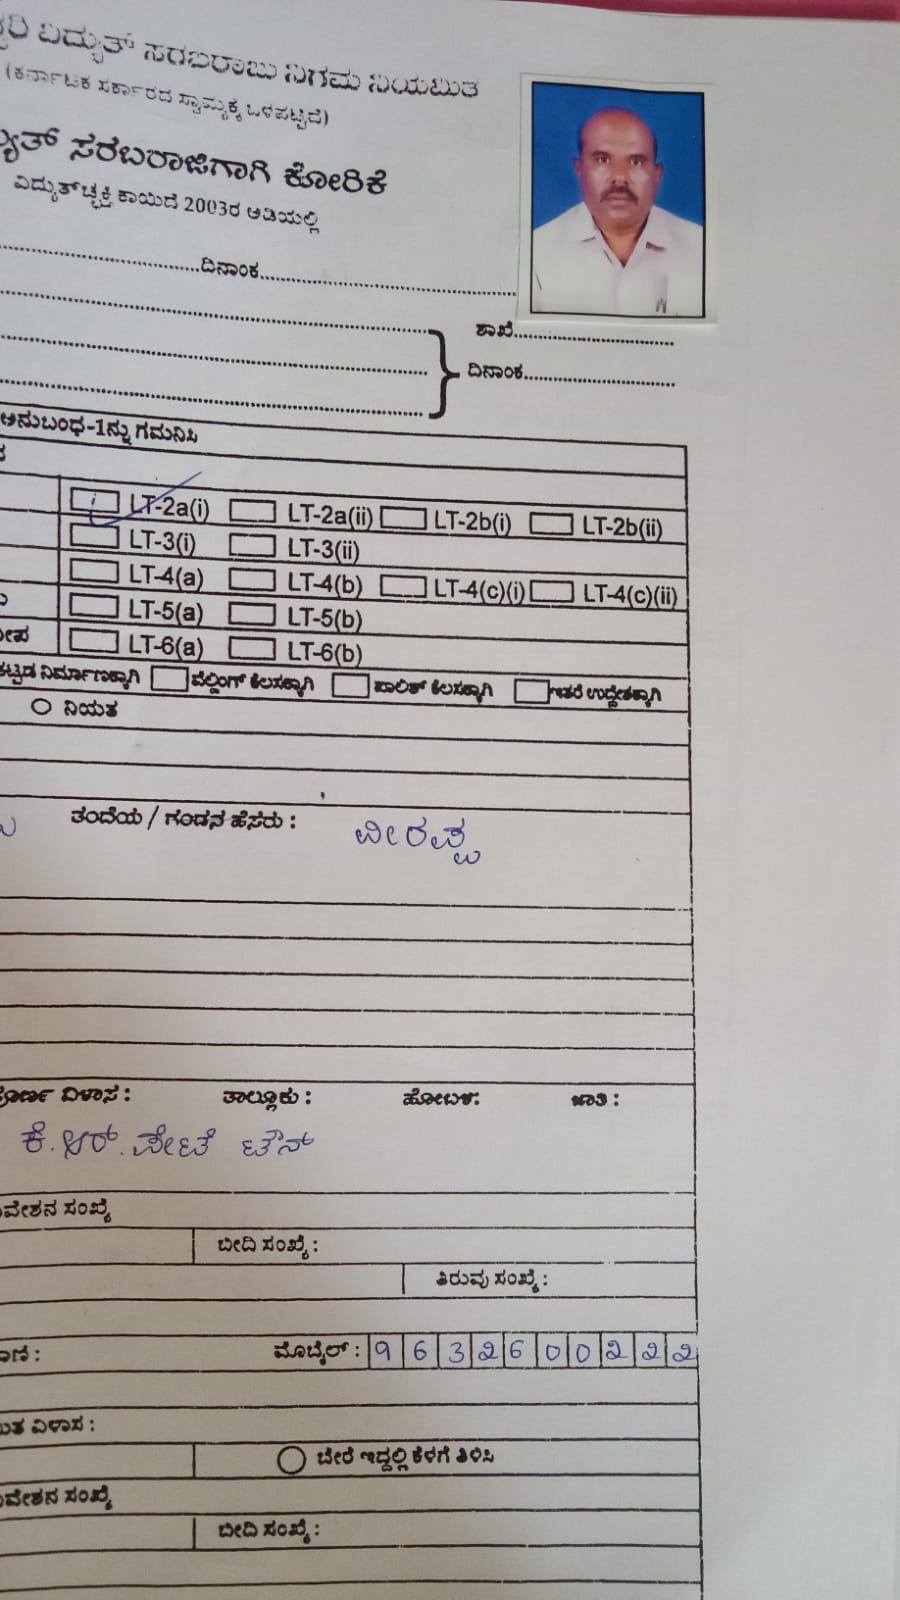 ವಿದ್ಯುತ್ ಸರಬರಾಜು ನಿಗಮ ನಿಯಮಿತ
(ಕರ್ನಾಟಕ ಸರ್ಕಾರದ ಸ್ವಾಮ್ಯಕ್ಕೆ ಒಳಪಟ್ಟಿದೆ)
ಸರಬರಾಜಿಗಾಗಿ ಕೋರಿಕೆ
ವಿದ್ಯುತ್‌ಚ್ಛಕ್ತಿ ಕಾಯಿದೆ 2003ರ ಅಡಿಯಲ್ಲಿ
ದಿನಾಂಕ
ಶಾಖೆ
ದಿನಾಂಕ
ಅನುಬಂಧ-1ನ್ನು ಗಮನಿಸಿ
LT-2a(i) LT-2a(ii) LT-2b(i) LT-2b(ii)
LT-3(i) LT-3(ii)
LT-4(a) LT-4(b) LT-4(c)(i) LT-4(c)(ii)
LT-5(a) LT-5(b)
LT-6(a) LT-6(b)
ಕಟ್ಟಡ ನಿರ್ಮಾಣಕ್ಕಾಗಿ ವೆಲ್ಡಿಂಗ್ ಕೆಲಸಕ್ಕಾಗಿ ಪಾಲಿಶ್ ಕೆಲಸಕ್ಕಾಗಿ ಇತರೆ ಉದ್ದೇಶಕ್ಕಾಗಿ
ನಿಯತ
ತಂದೆಯ / ಗಂಡನ ಹೆಸರು : ವೀರಪ್ಪ
ವಿಳಾಸ : ತಾಲ್ಲೂಕು : ಹೋಬಳಿ: ಜಾತಿ :
ಕೆ.ಆರ್.ಪೇಟೆ ಟೌನ್
ಸಂಖ್ಯೆ
ಬೀದಿ ಸಂಖ್ಯೆ :
ತಿರುವು ಸಂಖ್ಯೆ :
ಮೊಬೈಲ್ : 9632600222
ವಿಳಾಸ :
ಬೇರೆ ಇದ್ದಲ್ಲಿ ಕೆಳಗೆ ತಿಳಿಸಿ
ಸಂಖ್ಯೆ
ಬೀದಿ ಸಂಖ್ಯೆ :